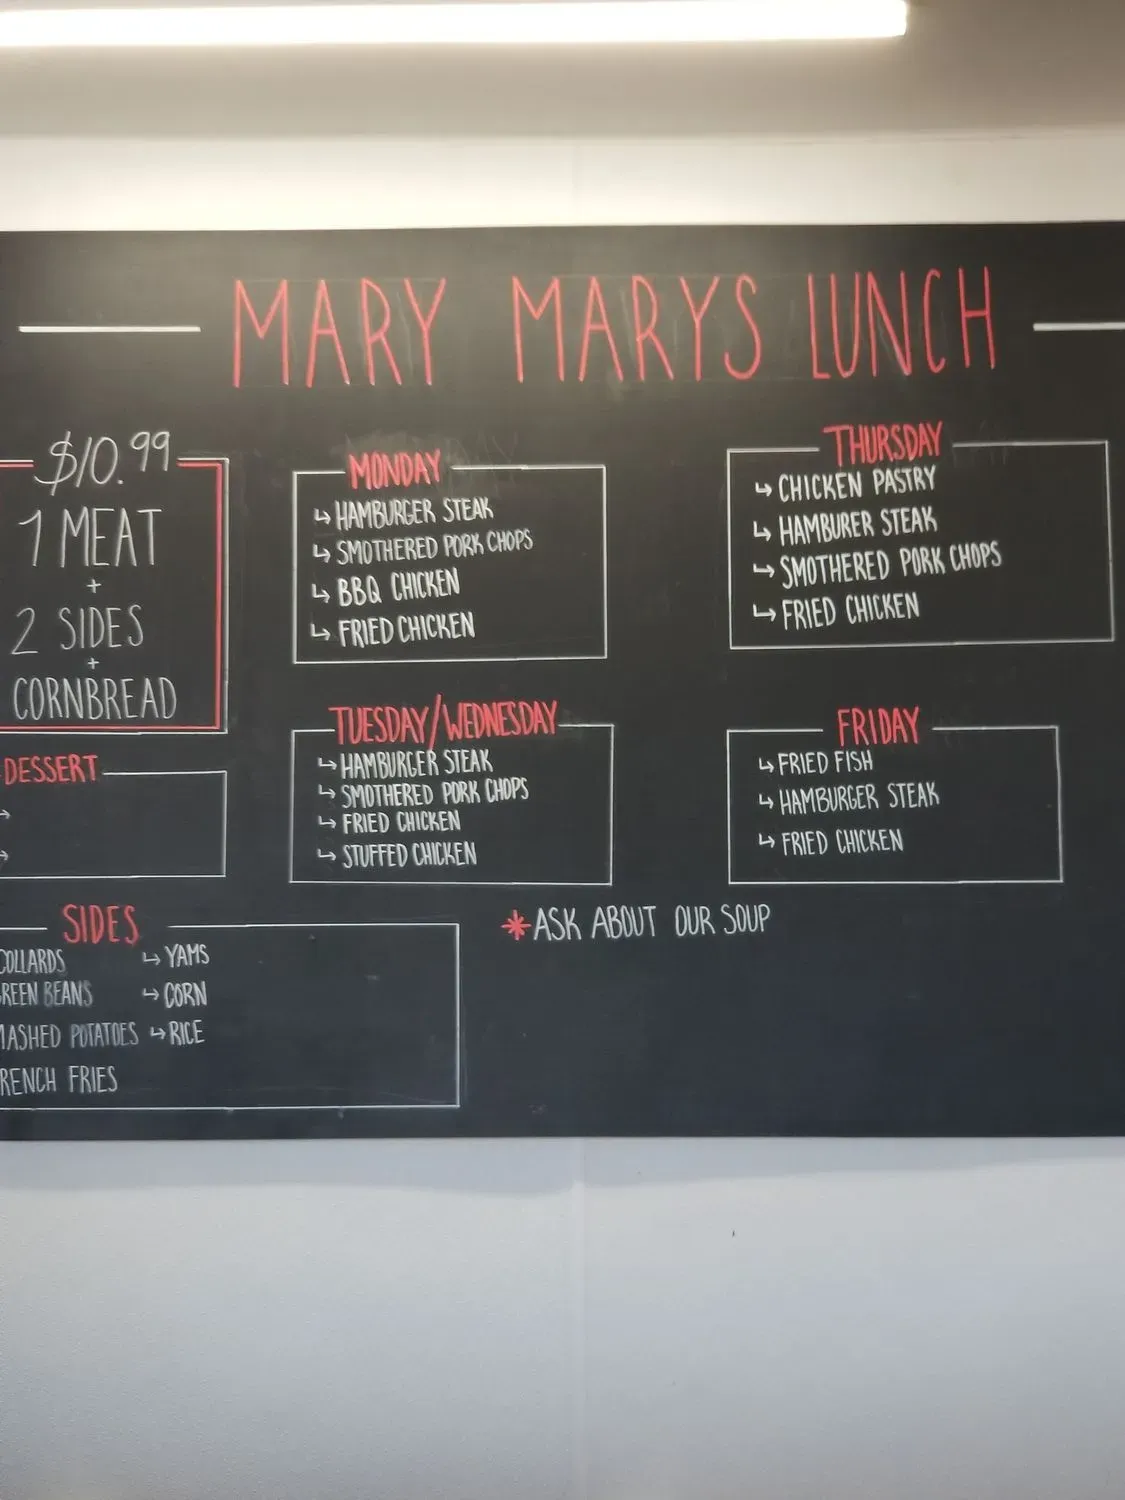 MARY MARYS LUNCH
$10.99
1 MEAT
+
2 SIDES
+
CORNBREAD
DESSERT
SIDES
COLLARDS
REEN BEANS
MASHED POTATOES
RENCH FRIES
↳ YAMS
↳ CORN
↳ RICE
MONDAY
↳ HAMBURGER STEAK
↳ SMOTHERED PORK CHOPS
↳ BBQ CHICKEN
↳ FRIED CHICKEN
TUESDAY/WEDNESDAY
↳ HAMBURGER STEAK
↳ SMOTHERED PORK CHOPS
↳ FRIED CHICKEN
↳ STUFFED CHICKEN
THURSDAY
↳ CHICKEN PASTRY
↳ HAMBURER STEAK
↳ SMOTHERED PORK CHOPS
↳ FRIED CHICKEN
FRIDAY
↳ FRIED FISH
↳ HAMBURGER STEAK
↳ FRIED CHICKEN
* ASK ABOUT OUR SOUP